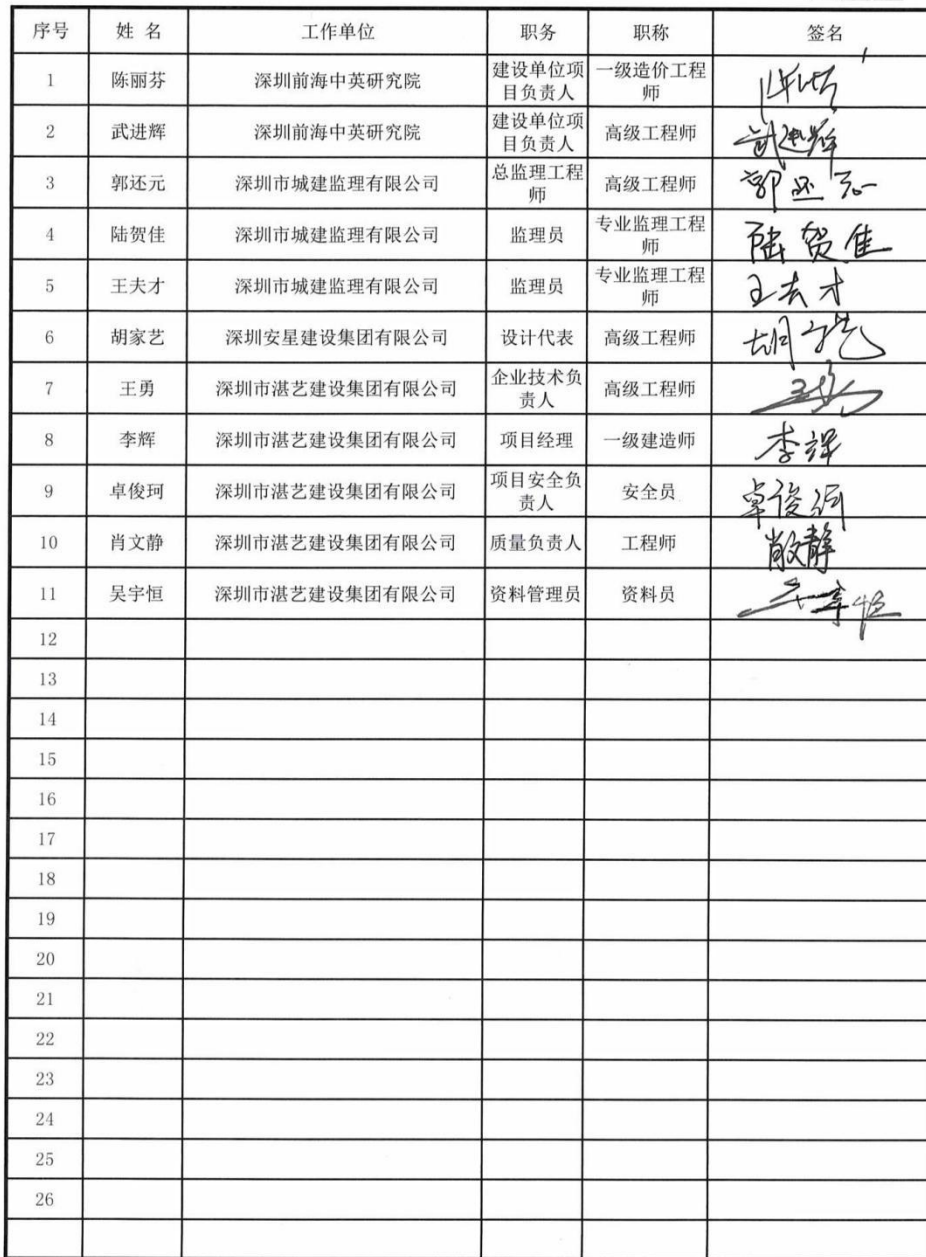 序号 姓 名 工作单位 职务 职称 签名
1 陈丽芬 深圳前海中英研究院 建设单位项目负责人 一级造价工程师
2 武进辉 深圳前海中英研究院 建设单位项目负责人 高级工程师 武进辉
3 郭还元 深圳市城建监理有限公司 总监理工程师 高级工程师 郭还元
4 陆贺佳 深圳市城建监理有限公司 监理员 专业监理工程师 陆贺佳
5 王夫才 深圳市城建监理有限公司 监理员 专业监理工程师 王夫才
6 胡家艺 深圳安星建设集团有限公司 设计代表 高级工程师 胡家艺
7 王勇 深圳市湛艺建设集团有限公司 企业技术负责人 高级工程师 王勇
8 李辉 深圳市湛艺建设集团有限公司 项目经理 一级建造师 李辉
9 卓俊珂 深圳市湛艺建设集团有限公司 项目安全负责人 安全员 卓俊珂
10 肖文静 深圳市湛艺建设集团有限公司 质量负责人 工程师 肖文静
11 吴宇恒 深圳市湛艺建设集团有限公司 资料管理员 资料员 吴宇恒
12
13
14
15
16
17
18
19
20
21
22
23
24
25
26